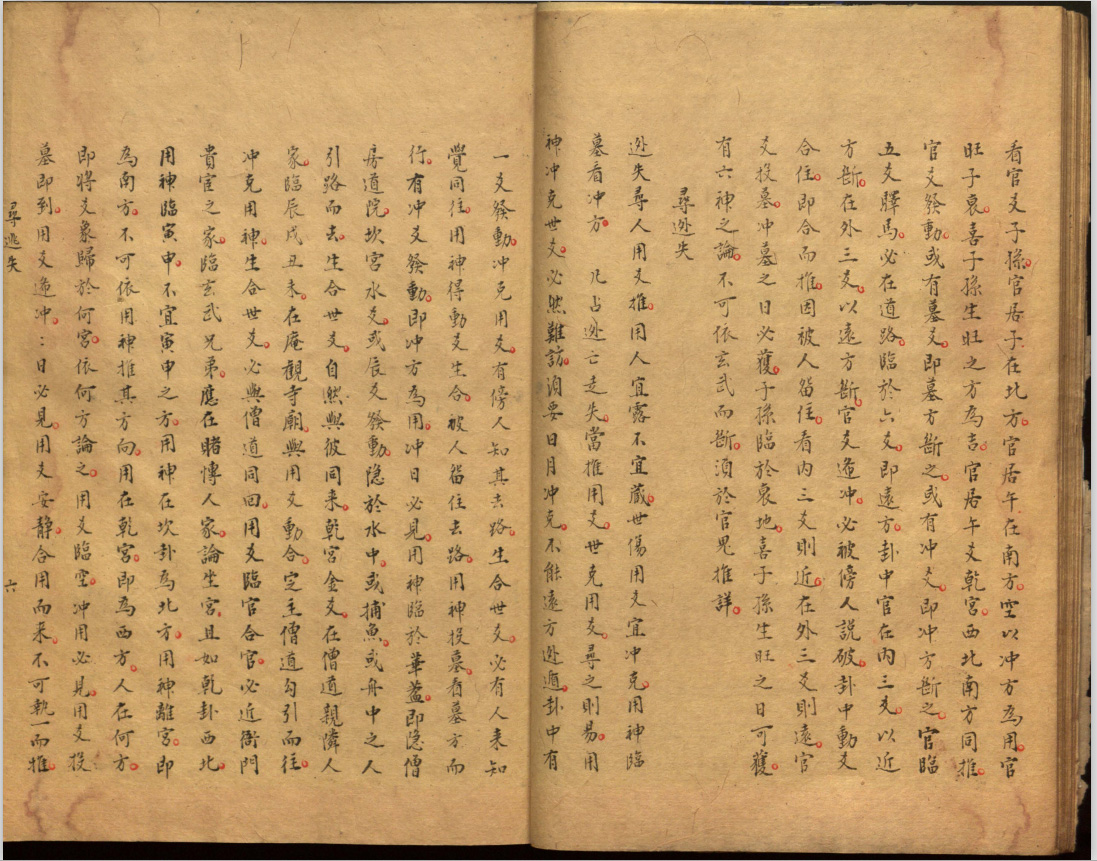 看官爻子孫官居子在北方官居午在南方空以冲方為用官
旺子衰喜子孫生旺之方為吉官居午爻乾宮西北南方同推
官爻發動或有墓爻即墓方斷之或有冲爻即冲方斷之官臨
五爻驛馬必在道路臨於六爻即遠方卦中官在內三爻以近
方斷在外三爻以遠方斷官爻逢冲必被傍人說破卦中動爻
合住即合而推因被人留住看內三爻則近在外三爻則遠官
爻投墓冲墓之日必獲子孫臨於衰地喜子孫生旺之日可獲
有六神之論不可依玄武而斷須於官鬼推詳
尋迯失
迯失尋人用爻推用人宜露不宜藏世傷用爻宜冲克用神臨
墓看冲方 凡占迯亡走失當推用爻世克用爻尋之則易用
神冲克世爻必然難訪須要日月冲克不能遠方迯遁卦中有
一爻發動冲克用爻有傍人知其去路生合世爻必有人来知
覺同往用神得動爻生合被人留住去路用神投墓看墓方而
行有冲爻發動即冲方為用冲日必見用神臨於華蓋即隐僧
房道院坎宮水爻或辰爻發動隐於水中或捕魚或舟中之人
引路而去生合世爻自然與彼同来乾宮金爻在僧道親隣人
家臨辰戌丑未在庵觀寺廟與用爻動合定主僧道勾引而往
冲克用神生合世爻必與僧道同回用爻臨官合官必近衙門
貴宦之家臨玄武兄弟應在賭博人家論坐宮且如乾卦西北
用神臨寅申不宜寅申之方用神在坎卦為北方用神離宮即
為南方不可依用神推其方向用在乾宮即為西方人在何方
即將爻象歸於何宮依何方論之用爻臨空冲用必見用爻投
墓即到用爻逢冲：日必見用爻安静合用而来不可執一而推
尋逃失 六